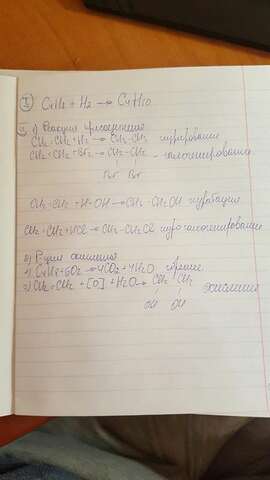 I C4H8 + H2 → C4H10
II а) Реакция присоединения
CH2=CH2+H2→CH3-CH3 гидрирование
CH2=CH2+Br2→CH2-CH2 - галогенирование
Br Br
CH2=CH2 + H-OH→CH3-CH2OH гидратация
CH2=CH2+HCl→CH3-CH2Cl гидрогалогенирование
б) окисления
1) C4H8+6O2→4CO2+4H2O горение
2) CH2=CH2 + [O] +H2O→ CH2 CH2 окисление
OH OH